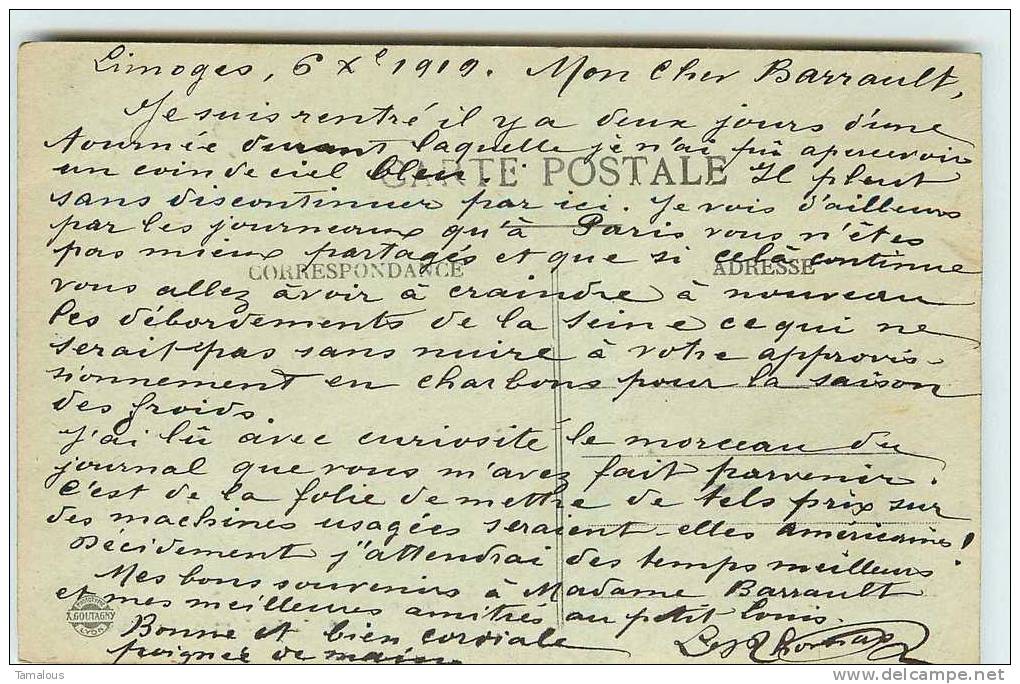 Limoges, 6 Xe 1919. Mon Cher Barrault,
Je suis rentré il y a deux jours d'une
tournée durant laquelle je n'ai pû apercevoir
un coin de ciel bleu. Il pleut
CARTE POSTALE
sans discontinuer par ici. Je vois d'ailleurs
par les journeaux qu'à Paris vous n'êtes
pas mieux partagés et que si celà continue
CORRESPONDANCE ADRESSE
vous allez àvoir à craindre à nouveau
les débordements de la seine ce qui ne
serait pas sans nuire à votre approvis-
sionnement en charbons pour la saison
des froids.
J'ai lû avec curiosité le morceau du
journal que vous m'avez fait parvenir.
c'est de la folie de mettre de tels prix sur
des machines usagées seraient-elles américaines!
Décidement j'attendrai des temps meilleurs.
Mes bons souvenirs à Madame Barrault
et mes meilleures amitiés au petit Louis.
Bonne et bien cordiale
poignée de main
PHOTOTYPIE
A. GOUTAGNY
LYON
Tamalous
www.delcampe.net